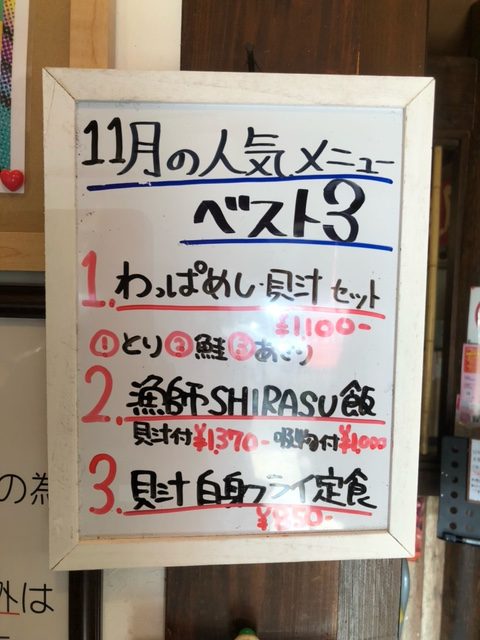 11月の人気メニュー
ベスト3
1. わっぱめし・貝汁セット
¥1,100-
①とり②鮭③あさり
2. 漁師SHIRASU飯
貝汁付¥1,370- 吸物付¥1,000
3. 貝汁白身フライ定食
の為
外は